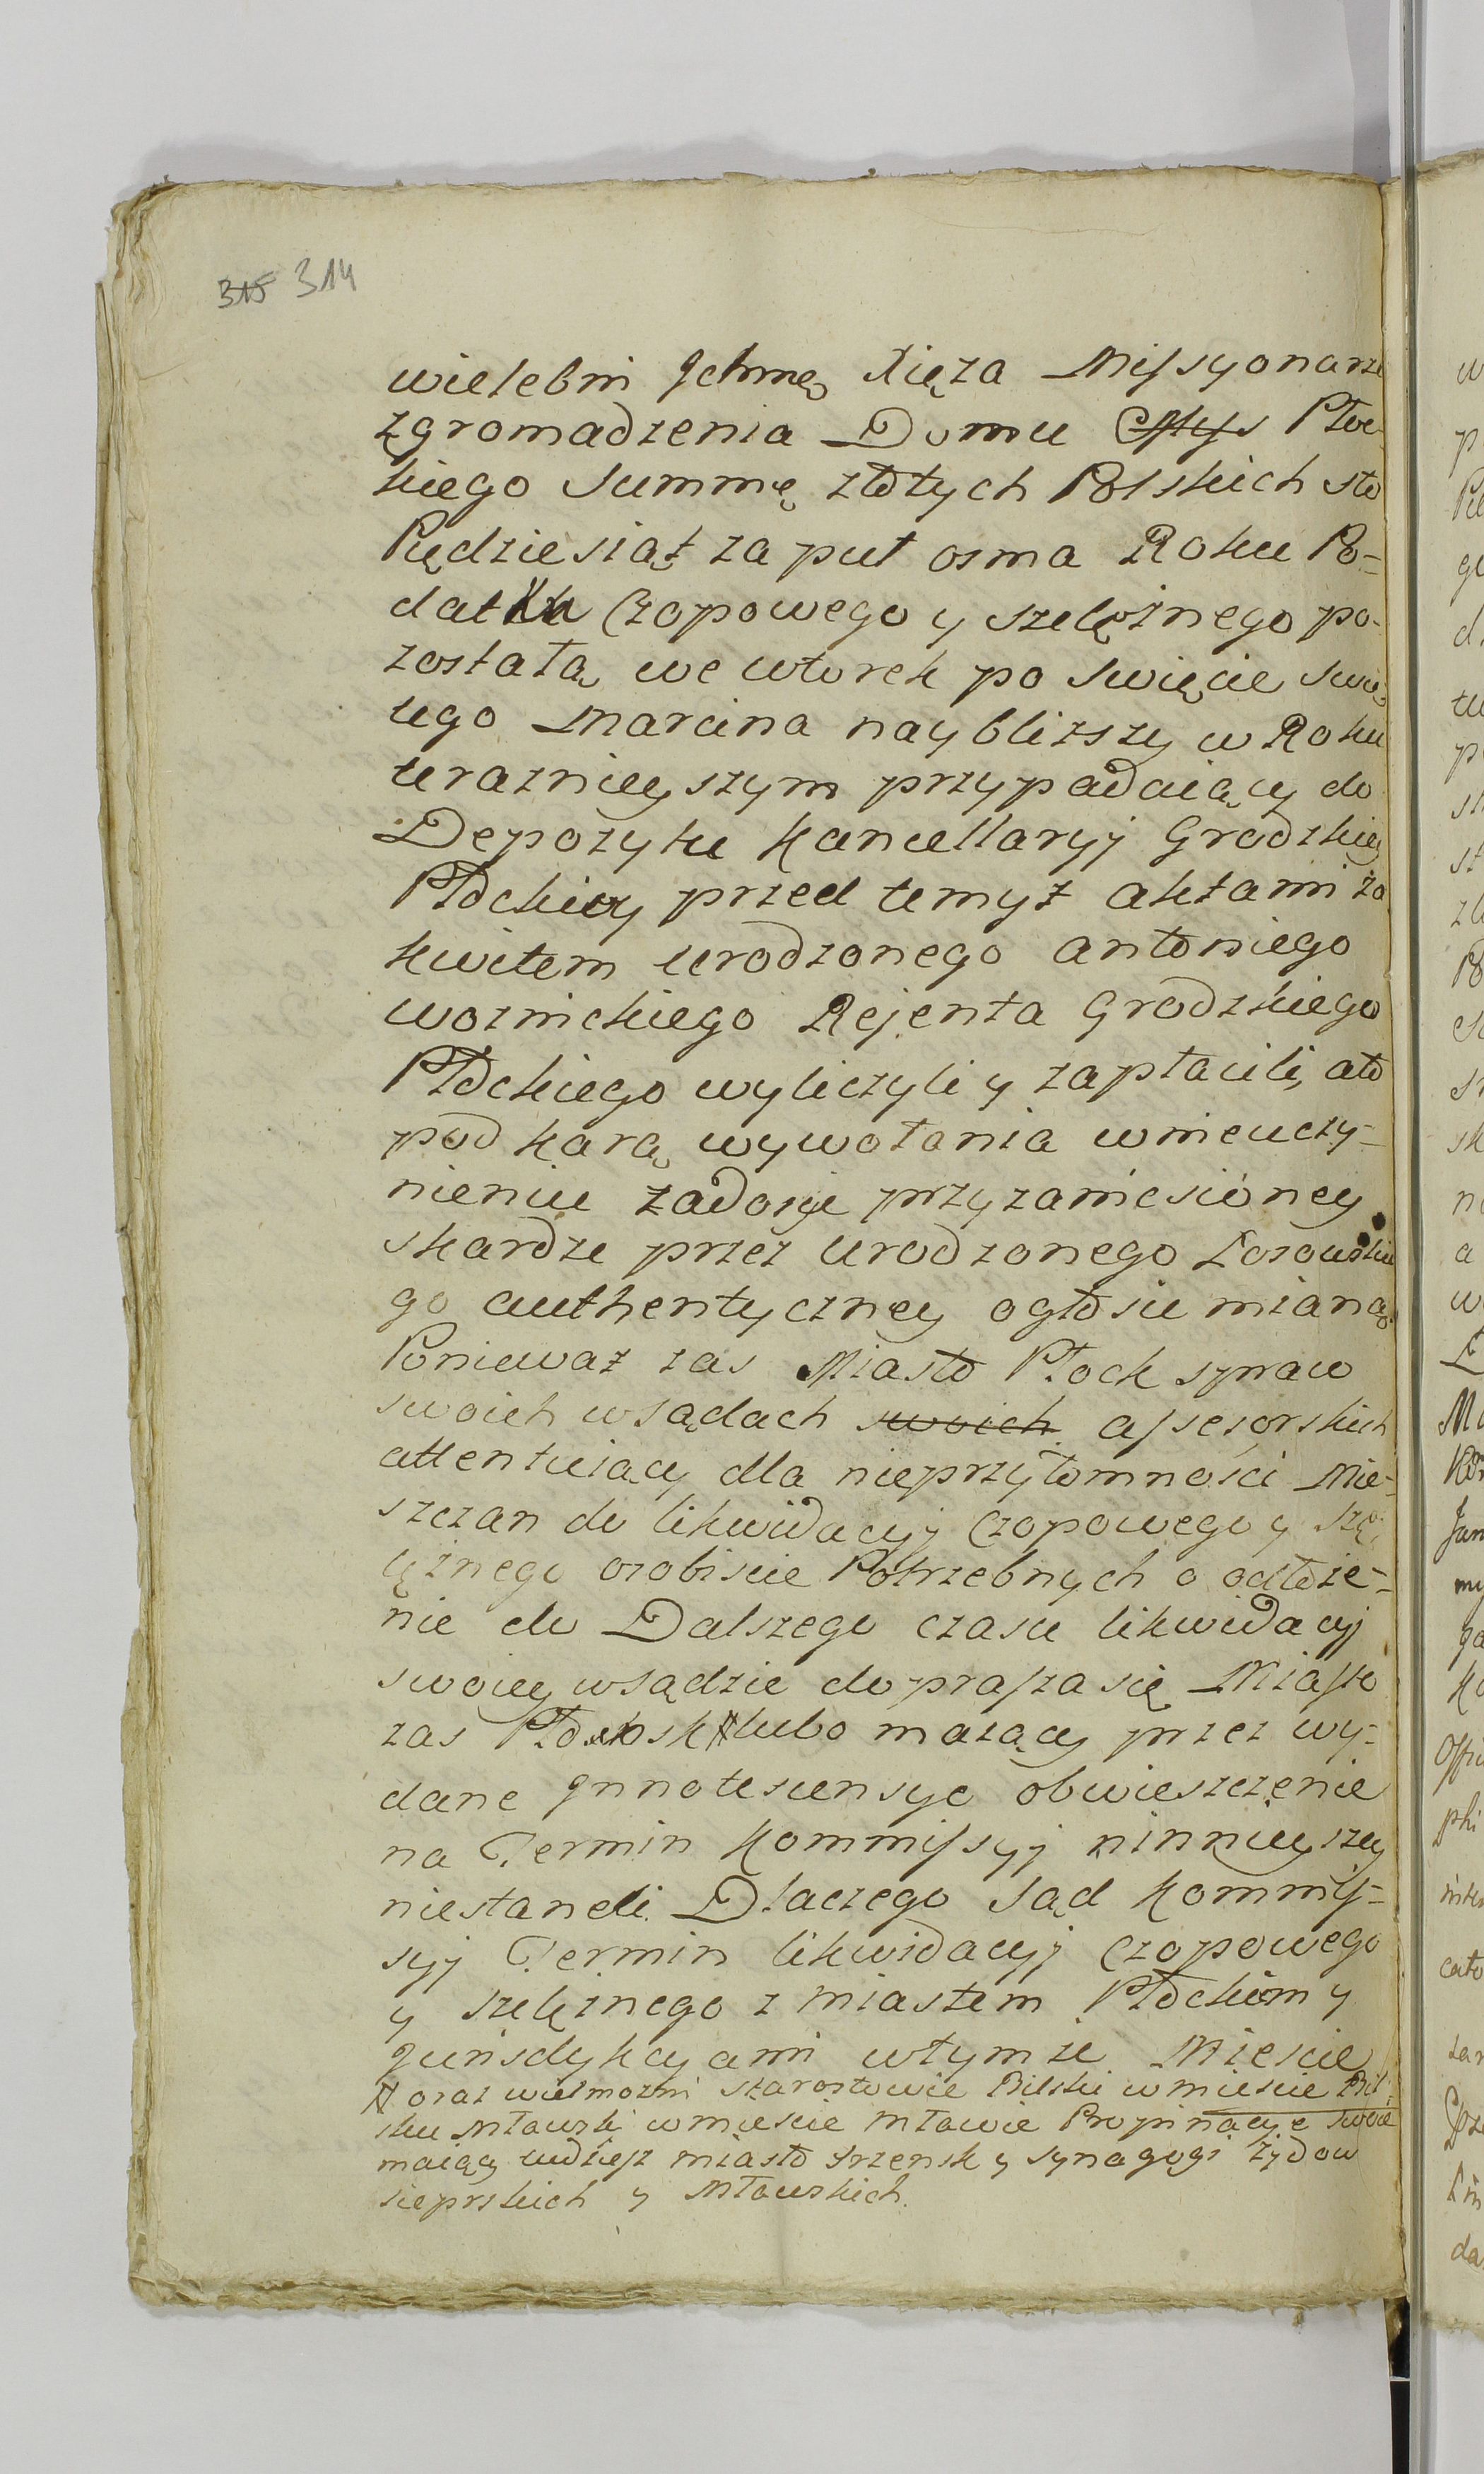 315 314
wielebni Jchmę Xięża Missyonarze
zgromadzenia Domu Płoc-
kiego Summę złotych Polskich sto
Pięдziesiąt za puł osma Roku Po-
datku Czopowego y szelężnego po-
zostałą we wtorek po Swięcie Swię-
tego Marcina naybliższy w Roku
teraznieyszym przypadaiący do
Depozytu Kancellaryj Grodzkiey
Płockiey przed temyż aktami za
kwitem urodzonego Antoniego
Woznickiego Rejenta Grodzkiego
Płockiego wyliczyli y zapłacili, ato
pod karą wywołania wnieuczy-
nieniu zadosyc przyzaniesioney
skardze przez urodzonego Łozowskie
go authentyczney ogłosic mianą.
Poniewaz zas Miasto Płock spraw
swoich wsądach swoich assesorskich
attentuiący dla nieprzytomności Mie-
szczan do likwidacyj Czopowego y Sze
lężnego osobiscie Potrzebnych o odłoże-
nie do Dalszego czasu likwidacyj
swoiey wsądzie dopraszasię Miasto
zas Płonsk # lubo maiący przez wy-
dane Jnnotescensye obwieszczenie
na Termin Kommissyj ninnieyszey
niestaneli. Dlaczego Sąd Kommis-
syj Termin likwidacyj Czopowego
y Szelężnego z miastem Płockim y
Jurisdykcyami wtymże Miescie
# oraz wielmozni Starostowie Bielski w miescie Biel
sku Mławski w miescie Mławie Propinacye swoie
maiący tudzież miasto Szrensk y synagogi Zydow
sieprskich y Mławskich.